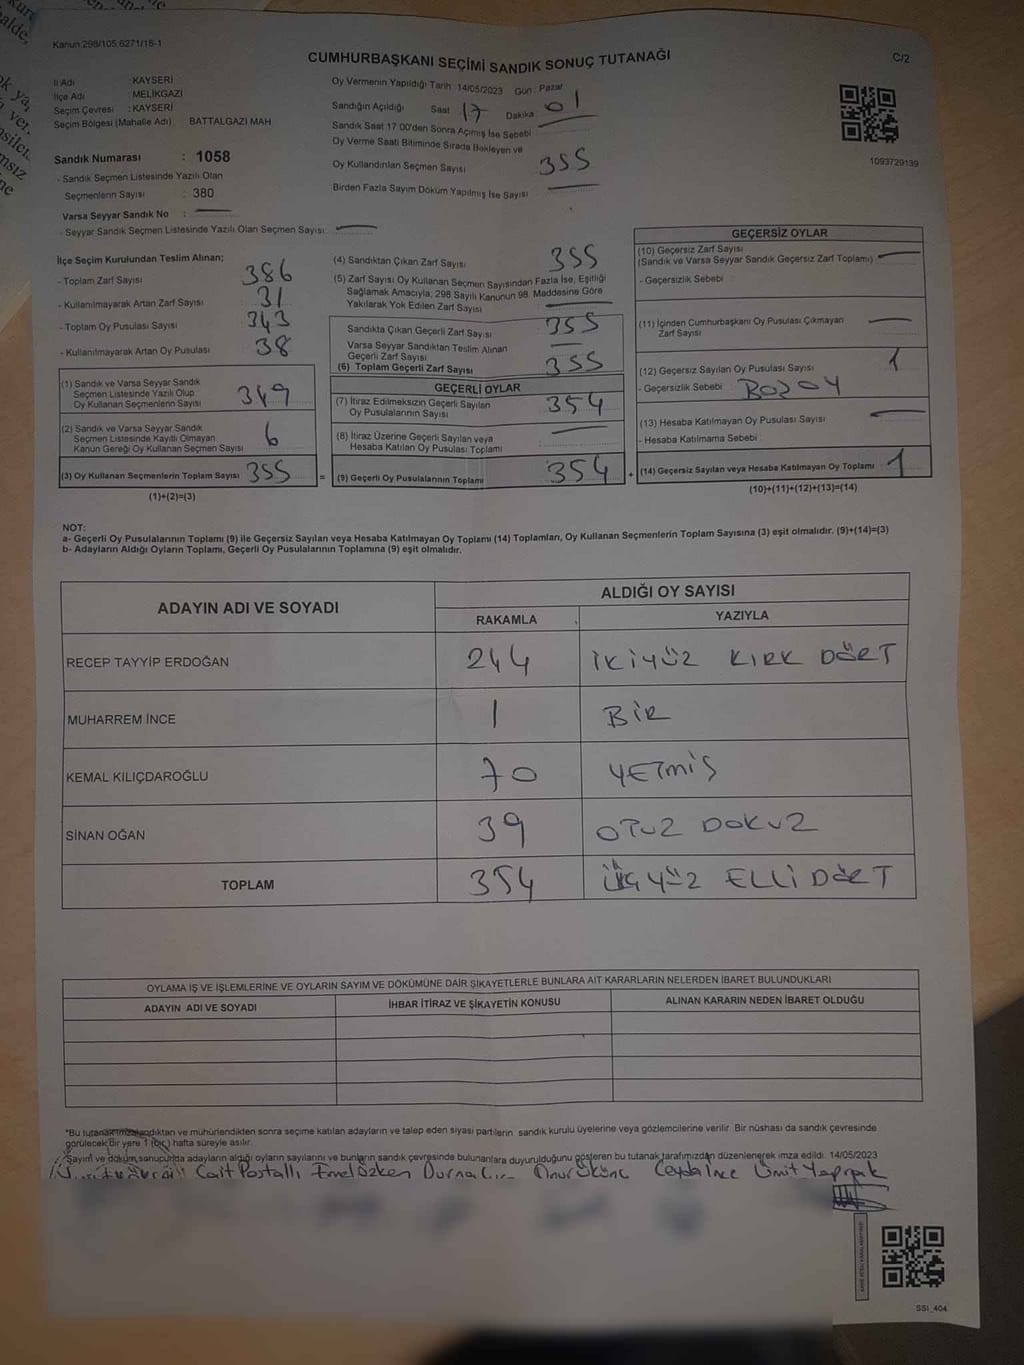 Kanun:298/105,6271/18-1
CUMHURBAŞKANI SEÇİMİ SANDIK SONUÇ TUTANAĞI
C/2
İl Adı : KAYSERİ
İlçe Adı : MELİKGAZİ
Seçim Çevresi : KAYSERİ
Seçim Bölgesi (Mahalle Adı) : BATTALGAZİ MAH
Sandık Numarası : 1058
- Sandık Seçmen Listesinde Yazılı Olan
Seçmenlerin Sayısı : 380
Varsa Seyyar Sandık No :
- Seyyar Sandık Seçmen Listesinde Yazılı Olan Seçmen Sayısı:
Oy Vermenin Yapıldığı Tarih 14/05/2023 Gün : Pazar
Sandığın Açıldığı Saat 17 Dakika 01
Sandık Saat 17:00'den Sonra Açılmış İse Sebebi
Oy Verme Saati Bitiminde Sırada Bekleyen ve
Oy Kullandırılan Seçmen Sayısı 355
Birden Fazla Sayım Döküm Yapılmış İse Sayısı
1093729139
İlçe Seçim Kurulundan Teslim Alınan;
- Toplam Zarf Sayısı 386
- Kullanılmayarak Artan Zarf Sayısı 31
- Toplam Oy Pusulası Sayısı 343
- Kullanılmayarak Artan Oy Pusulası 38
(1) Sandık ve Varsa Seyyar Sandık
Seçmen Listesinde Yazılı Olup
Oy Kullanan Seçmenlerin Sayısı 349
(2) Sandık ve Varsa Seyyar Sandık
Seçmen Listesinde Kayıtlı Olmayan
Kanun Gereği Oy Kullanan Seçmen Sayısı 6
(3) Oy Kullanan Seçmenlerin Toplam Sayısı 355
(1)+(2)=(3)
(4) Sandıktan Çıkan Zarf Sayısı 355
(5) Zarf Sayısı Oy Kullanan Seçmen Sayısından Fazla İse, Eşitliği
Sağlamak Amacıyla; 298 Sayılı Kanunun 98. Maddesine Göre
Yakılarak Yok Edilen Zarf Sayısı
Sandıkta Çıkan Geçerli Zarf Sayısı 355
Varsa Seyyar Sandıktan Teslim Alınan
Geçerli Zarf Sayısı
(6) Toplam Geçerli Zarf Sayısı 355
GEÇERLİ OYLAR
(7) İtiraz Edilmeksizin Geçerli Sayılan
Oy Pusulalarının Sayısı 354
(8) İtiraz Üzerine Geçerli Sayılan veya
Hesaba Katılan Oy Pusulası Toplamı
= (9) Geçerli Oy Pusulalarının Toplamı 354
GEÇERSİZ OYLAR
(10) Geçersiz Zarf Sayısı
(Sandık ve Varsa Seyyar Sandık Geçersiz Zarf Toplamı)
- Geçersizlik Sebebi :
(11) İçinden Cumhurbaşkanı Oy Pusulası Çıkmayan
Zarf Sayısı
(12) Geçersiz Sayılan Oy Pusulası Sayısı 1
- Geçersizlik Sebebi :
(13) Hesaba Katılmayan Oy Pusulası Sayısı
- Hesaba Katılmama Sebebi :
+ (14) Geçersiz Sayılan veya Hesaba Katılmayan Oy Toplamı 1
(10)+(11)+(12)+(13)=(14)
NOT:
a- Geçerli Oy Pusulalarının Toplamı (9) ile Geçersiz Sayılan veya Hesaba Katılmayan Oy Toplamı (14) Toplamları, Oy Kullanan Seçmenlerin Toplam Sayısına (3) eşit olmalıdır. (9)+(14)=(3)
b- Adayların Aldığı Oyların Toplamı, Geçerli Oy Pusulalarının Toplamına (9) eşit olmalıdır.
ADAYIN ADI VE SOYADI ALDIĞI OY SAYISI
RAKAMLA YAZIYLA
RECEP TAYYİP ERDOĞAN 244 İKİYÜZ KIRK DÖRT
MUHARREM İNCE 1 BİR
KEMAL KILIÇDAROĞLU 70 YETMİŞ
SİNAN OĞAN 39 OTUZ DOKUZ
TOPLAM 354 ÜÇYÜZ ELLİ DÖRT
OYLAMA İŞ VE İŞLEMLERİNE VE OYLARIN SAYIM VE DÖKÜMÜNE DAİR ŞİKAYETLERLE BUNLARA AİT KARARLARIN NELERDEN İBARET BULUNDUKLARI
ADAYIN ADI VE SOYADI İHBAR İTİRAZ VE ŞİKAYETİN KONUSU ALINAN KARARIN NEDEN İBARET OLDUĞU
*Bu tutanak imzalandıktan ve mühürlendikten sonra seçime katılan adayların ve talep eden siyasi partilerin sandık kurulu üyelerine veya gözlemcilerine verilir. Bir nüshası da sandık çevresinde
görülecek bir yere 1 (bir) hafta süreyle asılır.
Sayım ve döküm sonucunda adayların aldığı oyların sayılarını ve bunların sandık çevresinde bulunanlara duyurulduğunu gösteren bu tutanak tarafımızdan düzenlenerek imza edildi. 14/05/2023
Cait Postallı Emel Özken Onur Ceyda İnce Ümit Yaprak
SSİ_404